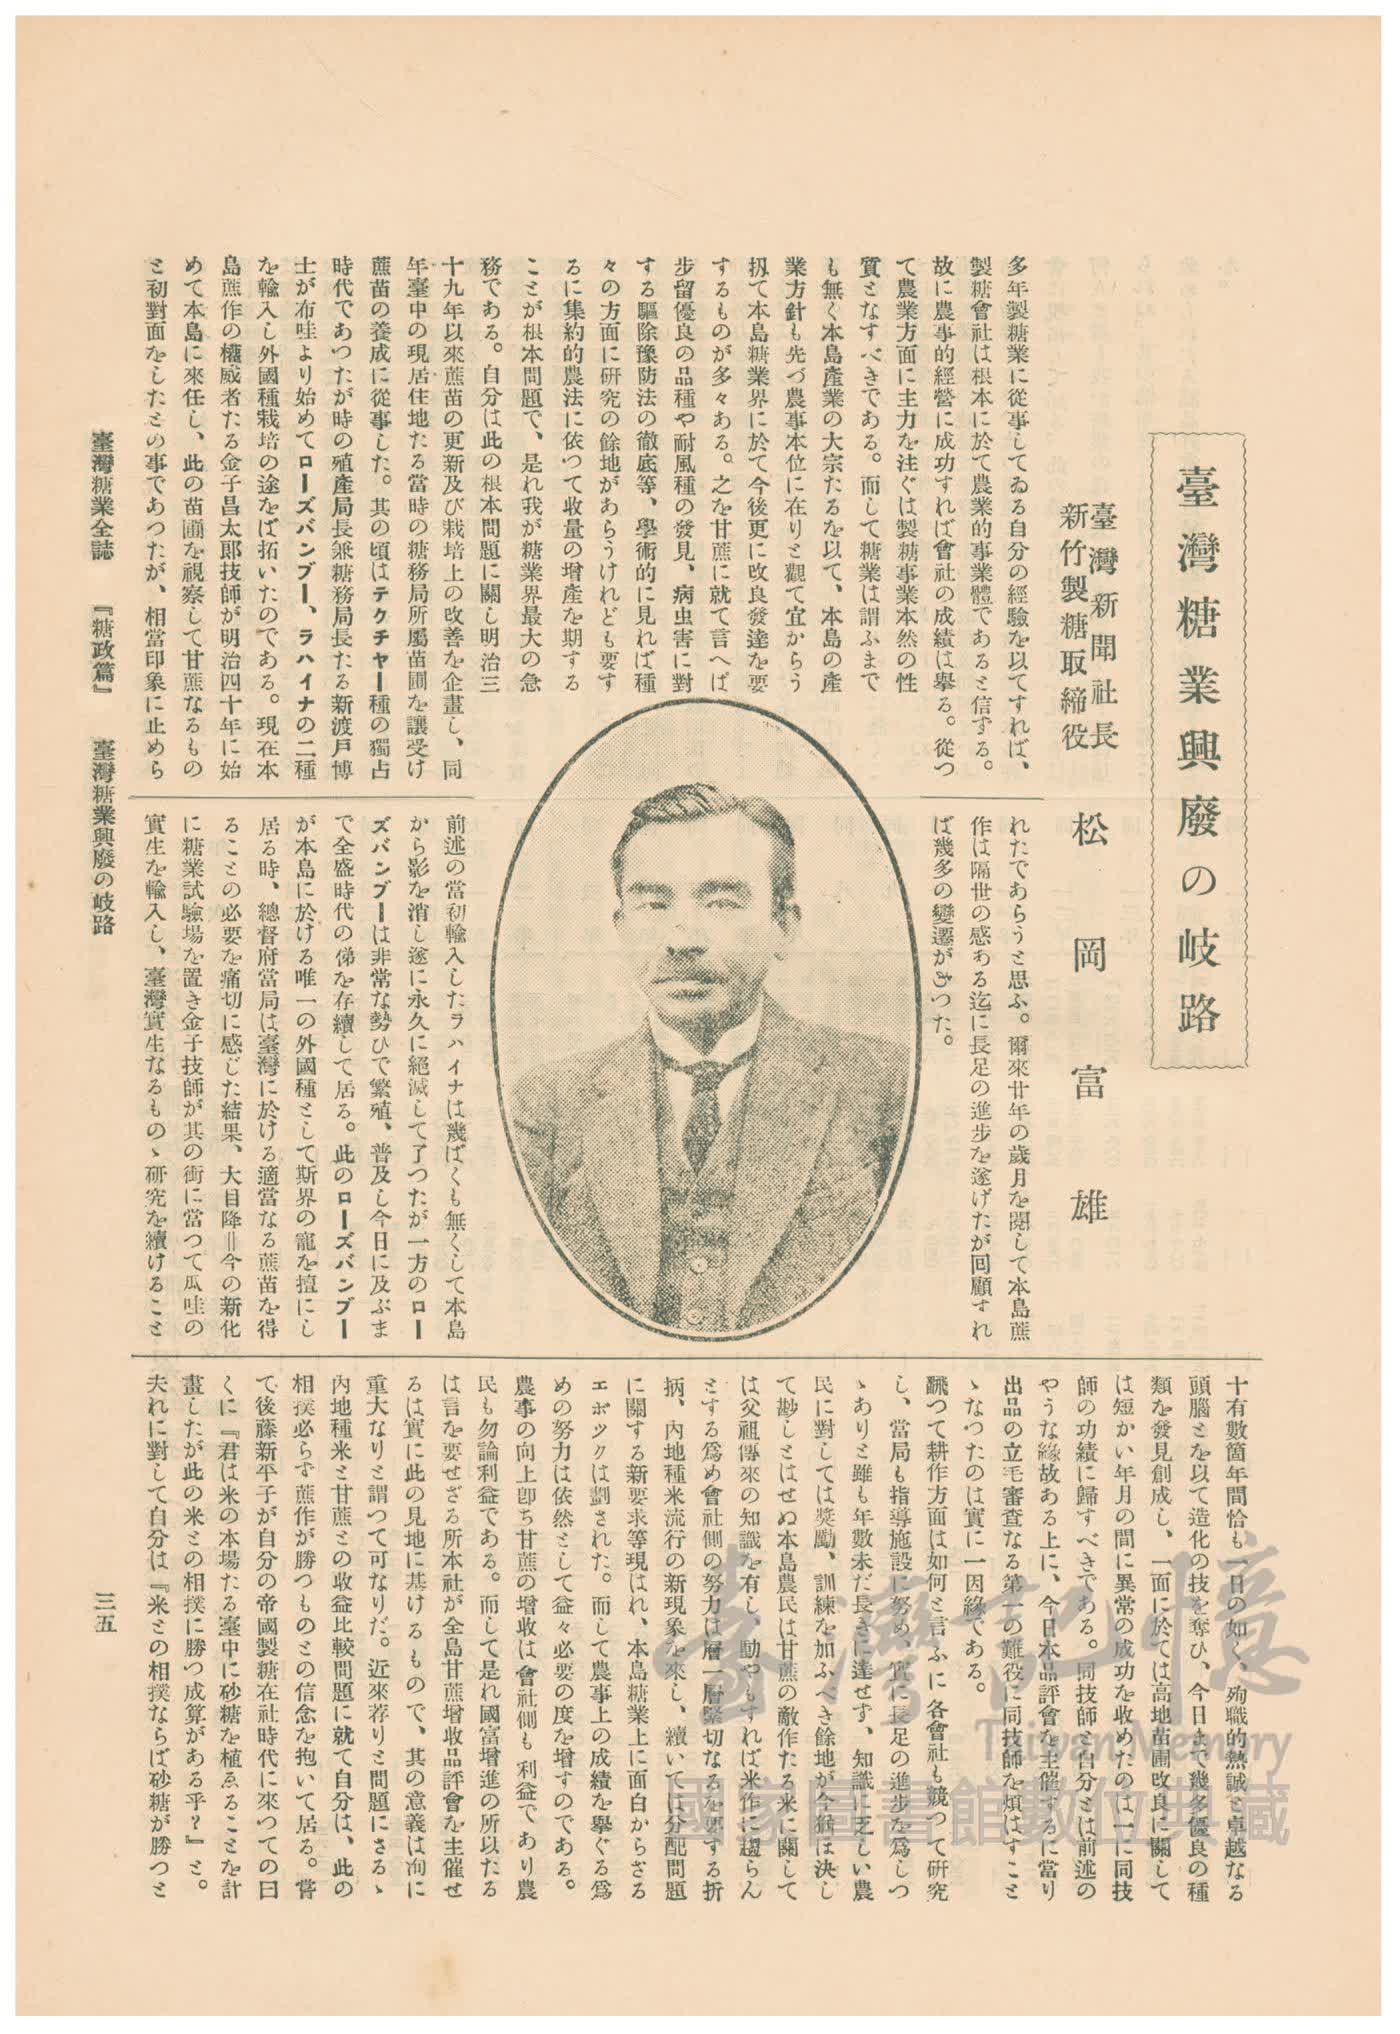 臺灣糖業興廢の岐路
臺灣新聞社長
新竹製糖取締役
松岡富雄
多年製糖業に從事してゐる自分の經驗を以てすれば、
製糖會社は根本に於て農業的事業體であると信ずる。
故に農事的經營に成功すれば會社の成績は擧る。從つ
て農業方面に主力を注ぐは製糖事業本然の性
質となすべきである。而して糖業は謂ふまで
も無く本島產業の大宗たるを以て、本島の產
業方針も先づ農事本位に在りと觀て宜からう
扨て本島糖業界に於て今後更に改良發達を要
するものが多々ある。之を甘蔗に就て言へば
步留優良の品種や耐風種の發見、病虫害に對
する驅除豫防法の徹底等、學術的に見れば種
々の方面に硏究の餘地があらうけれども要す
るに集約的農法に依つて收量の增產を期する
ことが根本問題で、是れ我が糖業界最大の急
務である。自分は此の根本問題に關し明治三
十九年以來蔗苗の更新及び栽培上の改善を企畫し、同
年臺中の現居住地たる當時の糖務局所屬苗圃を讓受け
蔗苗の養成に從事した。其の頃はテクチヤー種の獨占
時代であつたが時の殖產局長兼糖務局長たる新渡戶博
士が布哇より始めてローズバンブー、ラハイナの二種
を輸入し外國種栽培の途をば拓いたのである。現在本
島蔗作の權威者たる金子昌太郞技師が明治四十年に始
めて本島に來任し、此の苗圃を視察して甘蔗なるもの
と初對面をしたとの事であつたが、相當印象に止めら
れたであらうと思ふ。爾來廿年の歲月を閱して本島蔗
作は隔世の感ある迄に長足の進步を遂げたが回顧すれ
ば幾多の變遷があつた。
前述の當初輸入したラハイナは幾ばくも無くして本島
から影を消し遂に永久に絕滅して了つたが一方のロー
ズバンブーは非常な勢ひで繁殖、普及し今日に及ぶま
で全盛時代の俤を存續して居る。此のローズバンブー
が本島に於ける唯一の外國種として斯界の寵を擅にし
居る時、總督府當局は臺灣に於ける適當なる蔗苗を得
ることの必要を痛切に感じた結果、大目降＝今の新化
に糖業試驗場を置き金子技師が其の衝に當つて瓜哇の
實生を輸入し、臺灣實生なるものゝ硏究を續けること
十有數箇年間恰も一日の如く、殉職的熱誠と卓越なる
頭腦とを以て造化の技を奪ひ、今日まで幾多優良の種
類を發見創成し、一面に於ては高地苗圃改良に關して
は短かい年月の間に異常の成功を收めたのは一に同技
師の功績に歸すべきである。同技師と自分とは前述の
やうな緣故ある上に、今日本品評會を主催するに當り
出品の立毛審査なる第一の難役に同技師を煩はすこと
ゝなつたのは實に一因緣である。
飜つて耕作方面は如何と言ふに各會社も競つて硏究
し、當局も指導施設に努め、實に長足の進步を爲しつ
ゝありと雖も年數未だ長きに達せず、知識に乏しい農
民に對しては奬勵、訓練を加ふべき餘地が今猶ほ決し
て尠しとはせぬ本島農民は甘蔗の敵作たる米に關して
は父祖傳來の知識を有し、動やもすれば米作に趨らん
とする爲め會社側の努力は層一層緊切なるを要する折
柄、內地種米流行の新現象を來し、續いては分配問題
に關する新要求等現はれ、本島糖業上に面白からざる
エポツクは劃された。而して農事上の成績を擧ぐる爲
めの努力は依然として益々必要の度を增すのである。
農事の向上卽ち甘蔗の增收は會社側も利益であり農
民も勿論利益である。而して是れ國富增進の所以たる
は言を要せざる所本社が全島甘蔗增收品評會を主催せ
るは實に此の見地に基けるもので、其の意義は洵に
重大なりと謂つて可なりだ。近來荐りと問題にさるゝ
內地種米と甘蔗との收益比較問題に就て自分は、此の
相撲必らず蔗作が勝つものとの信念を抱いて居る。嘗
て後藤新平子が自分の帝國製糖在社時代に來つての曰
くに『君は米の本場たる臺中に砂糖を植ゑることを計
畫したが此の米との相撲に勝つ成算がある乎？』と。
夫れに對して自分は『米との相撲ならば砂糖が勝つと
臺灣糖業全誌　『糖政篇』　臺灣糖業興廢の岐路
三五
臺灣記憶
Taiwan Memory
國家圖書館數位典藏